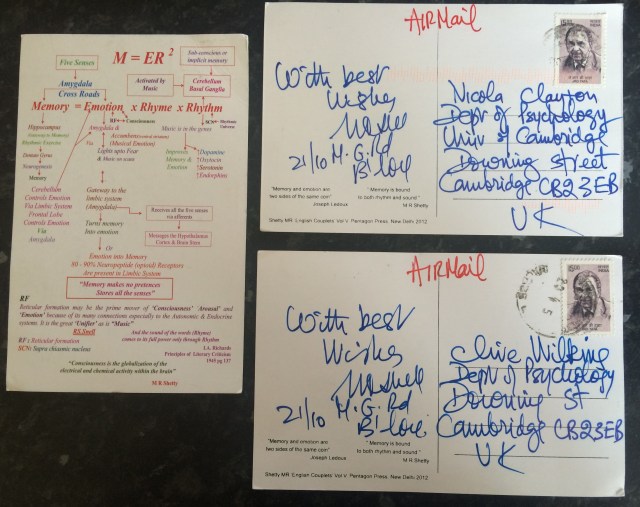 M = ER 2
Five Senses
Sub-conscious or
implicit memory
Amygdala
Cross Roads
Activated by
Music
Cerebellum
Basal Ganglia
Memory = Emotion x Rhyme x Rhythm
RF Consciousness
SCN
Hippocampus
Amygdala &
Accumbens
(Musical Emotion)
Music is in the genes
Via
Lights upto Fear
& Music on scans
Improves
Memory &
Emotion
Dopamine
Oxytocin
Serotonin
Endorphins
Neurogenesis
Memory
Cerebellum
Controls Emotion
Via Limbic System
Frontal Lobe
Controls Emotion
Via
Amygdala
Gateway to the
limbic system
(Amygdala)
Receives all the five senses
via afferents
Turns memory
Into emotion
Messages the Hypothalamus
Cortex & Brain Stem
or
Emotion into Memory
80 - 90% Neuropeptide (opioid) Receptors
are present in Limbic System
"Memory makes no pretences
Stores all the senses"
RF
Reticular formation may be the prime mover of 'Consciousness' 'Arousal' and
'Emotion' because of its many connections especially to the Autonomic & Endocrine
systems. It is the great 'Unifier' as is "Music"
RS.Snell
And the sound of the words (Rhyme)
comes to its full power only through Rhythm
RF: Reticular formation
SCN: Supra chiasmic nucleus
I.A. Richards
Principles of Literary Criticism
1945 pg 137
"Consciousness is the globalization of the
electrical and chemical activity within the brain"
M R Shetty
AIRMail
With best
Wishes
21/10 M.G. Rd
B'lore
"Memory and emotion are
two sides of the same coin"
Joseph Ledoux
"Memory is bound
to both rhythm and sound"
M R Shetty
Shetty MR English Couplets Vol V. Pentagon Press, New Delhi 2012
Nicola Clayton
Dept of Psychology
Univ of Cambridge
Downing Street
Cambridge CB23EB
UK
AIRMail
With best
Wishes
21/10 M.G. Rd
B'lore
"Memory and emotion are
two sides of the same coin"
Joseph Ledoux
"Memory is bound
to both rhythm and sound"
M R Shetty
Shetty MR English Couplets Vol V. Pentagon Press, New Delhi 2012
Clive Wilkins
Dept of Psychology
Downing St
Cambridge CB23EB
UK